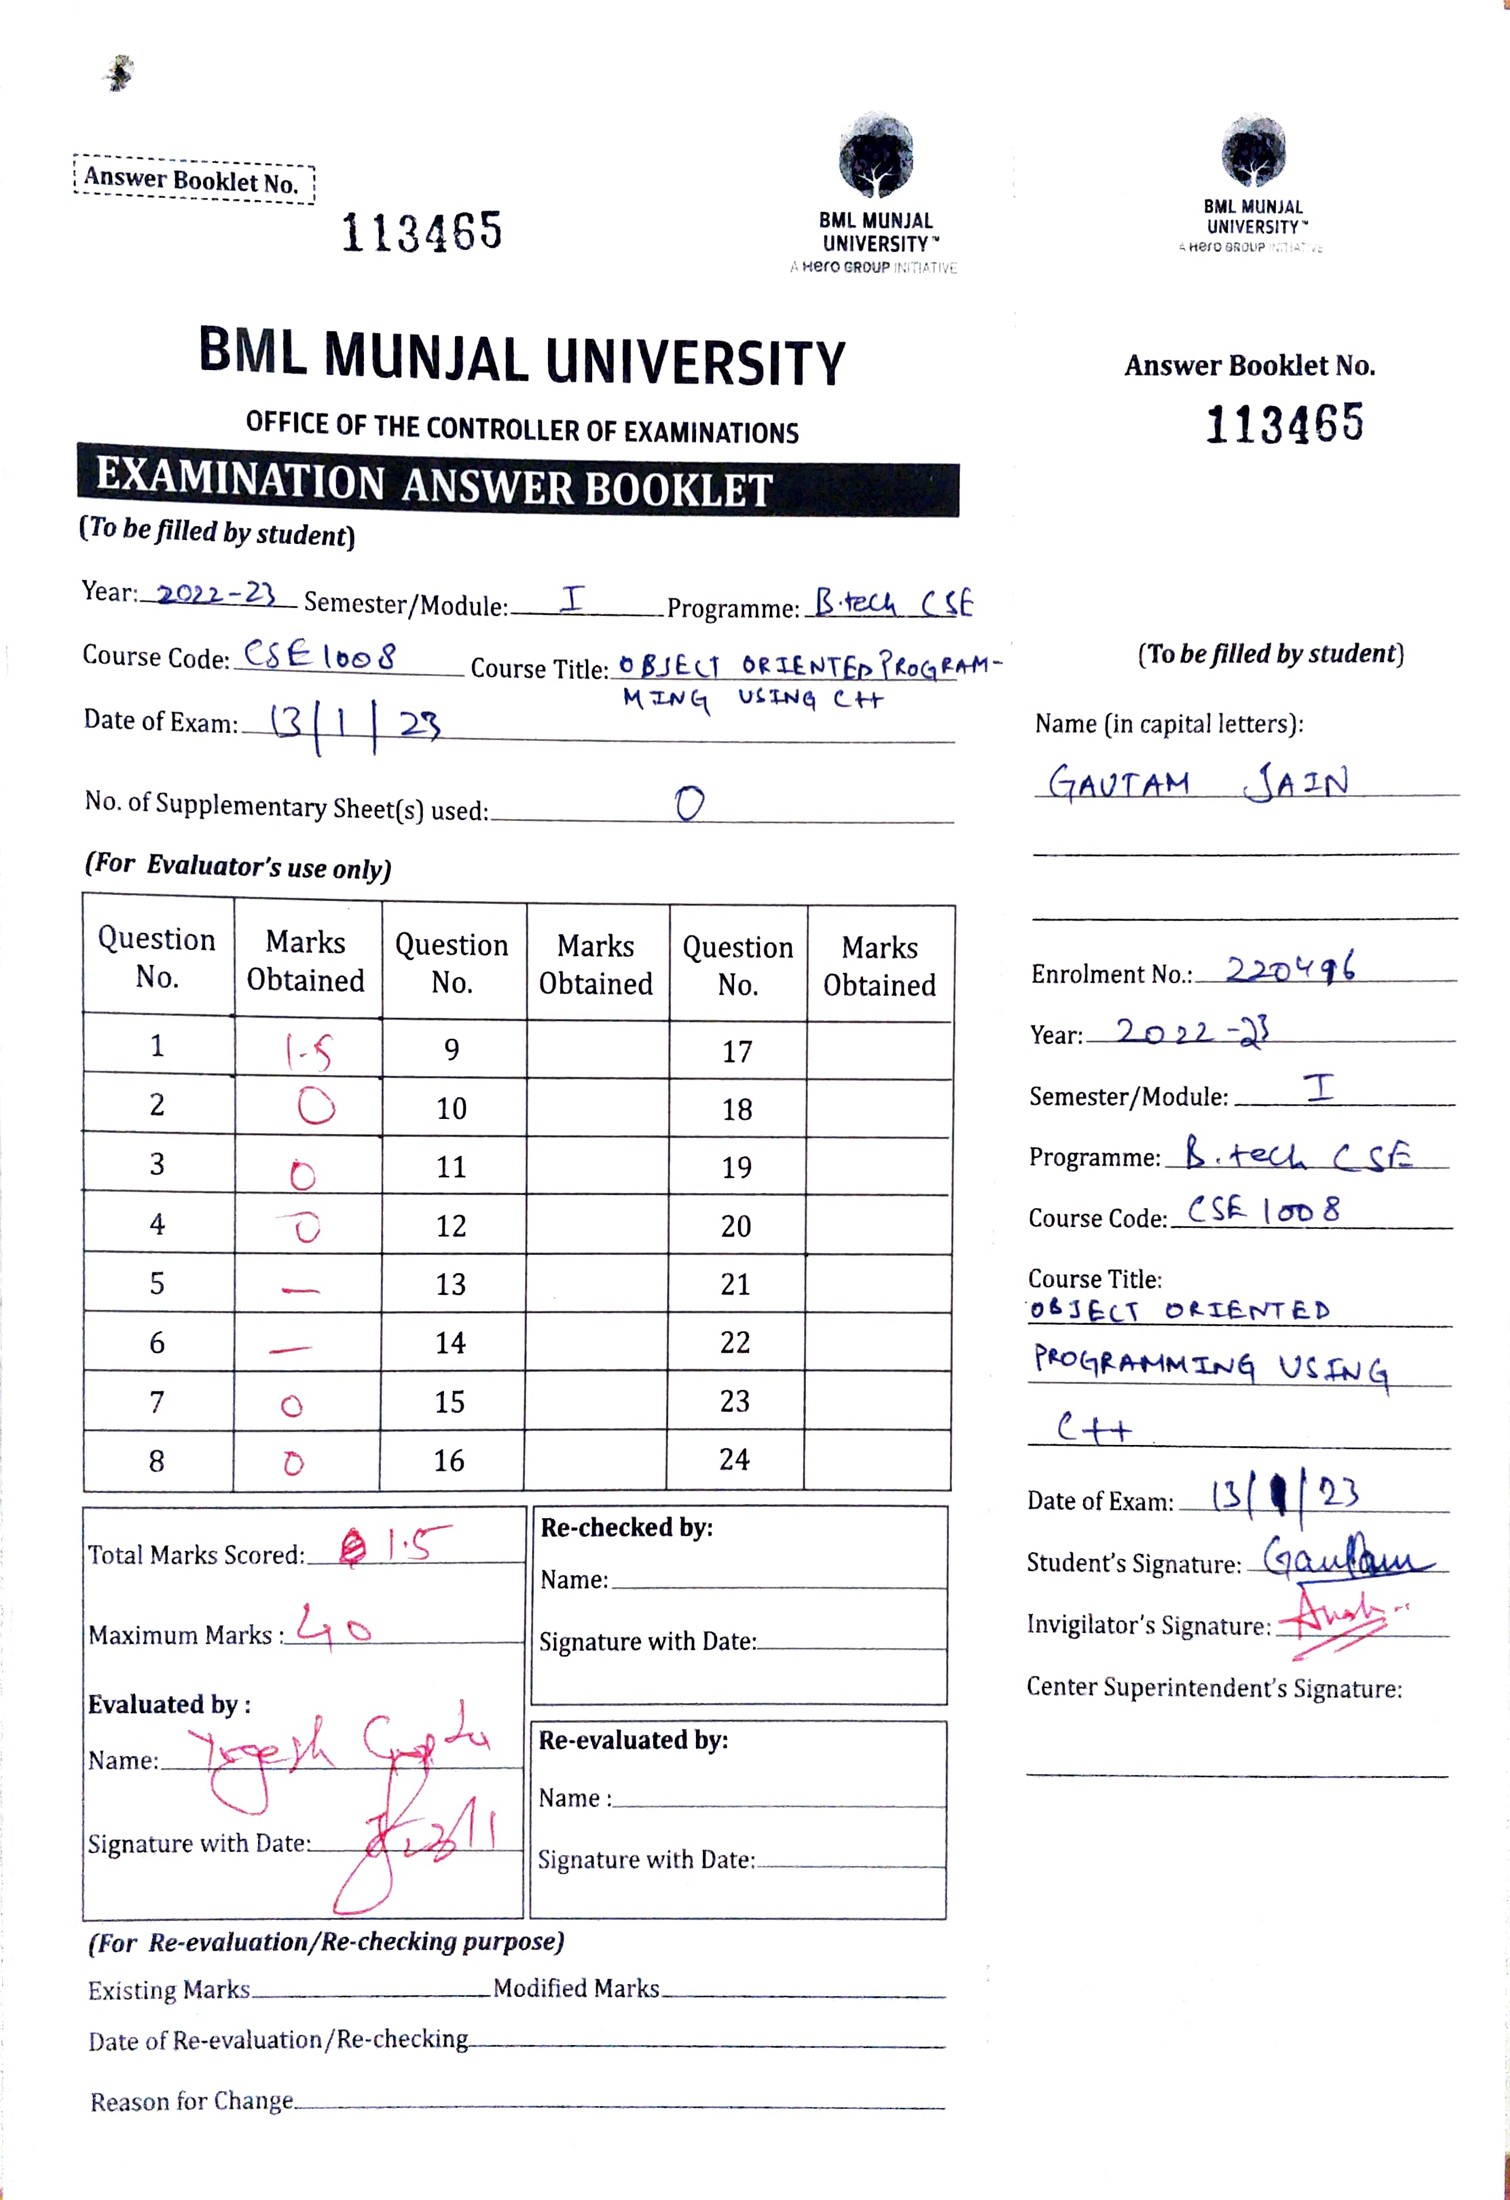 Answer Booklet No.
113465
BML MUNJAL
UNIVERSITY™
A Hero GROUP INITIATIVE
BML MUNJAL UNIVERSITY
OFFICE OF THE CONTROLLER OF EXAMINATIONS
EXAMINATION ANSWER BOOKLET
(To be filled by student)
Year: 2022-23 Semester/Module: I Programme: B.tech CSE
Course Code: CSE1008 Course Title: OBJECT ORIENTED PROGRAM-
MING USING C++
Date of Exam: 13/1/23
No. of Supplementary Sheet(s) used: 0
(For Evaluator's use only)
Question No. Marks Obtained Question No. Marks Obtained Question No. Marks Obtained
1 1.5 9 17
2 0 10 18
3 0 11 19
4 0 12 20
5 — 13 21
6 — 14 22
7 0 15 23
8 0 16 24
Total Marks Scored: 1.5
Maximum Marks : 40
Evaluated by :
Name: Yogesh Gupta
Signature with Date:
Re-checked by:
Name:
Signature with Date:
Re-evaluated by:
Name :
Signature with Date:
(For Re-evaluation/Re-checking purpose)
Existing Marks Modified Marks
Date of Re-evaluation/Re-checking
Reason for Change
BML MUNJAL
UNIVERSITY™
A Hero GROUP INITIATIVE
Answer Booklet No.
113465
(To be filled by student)
Name (in capital letters):
GAUTAM JAIN
Enrolment No.: 220496
Year: 2022-23
Semester/Module: I
Programme: B.tech CSE
Course Code: CSE 1008
Course Title:
OBJECT ORIENTED
PROGRAMMING USING
C++
Date of Exam: 13/1/23
Student's Signature: Gautam
Invigilator's Signature:
Center Superintendent's Signature: